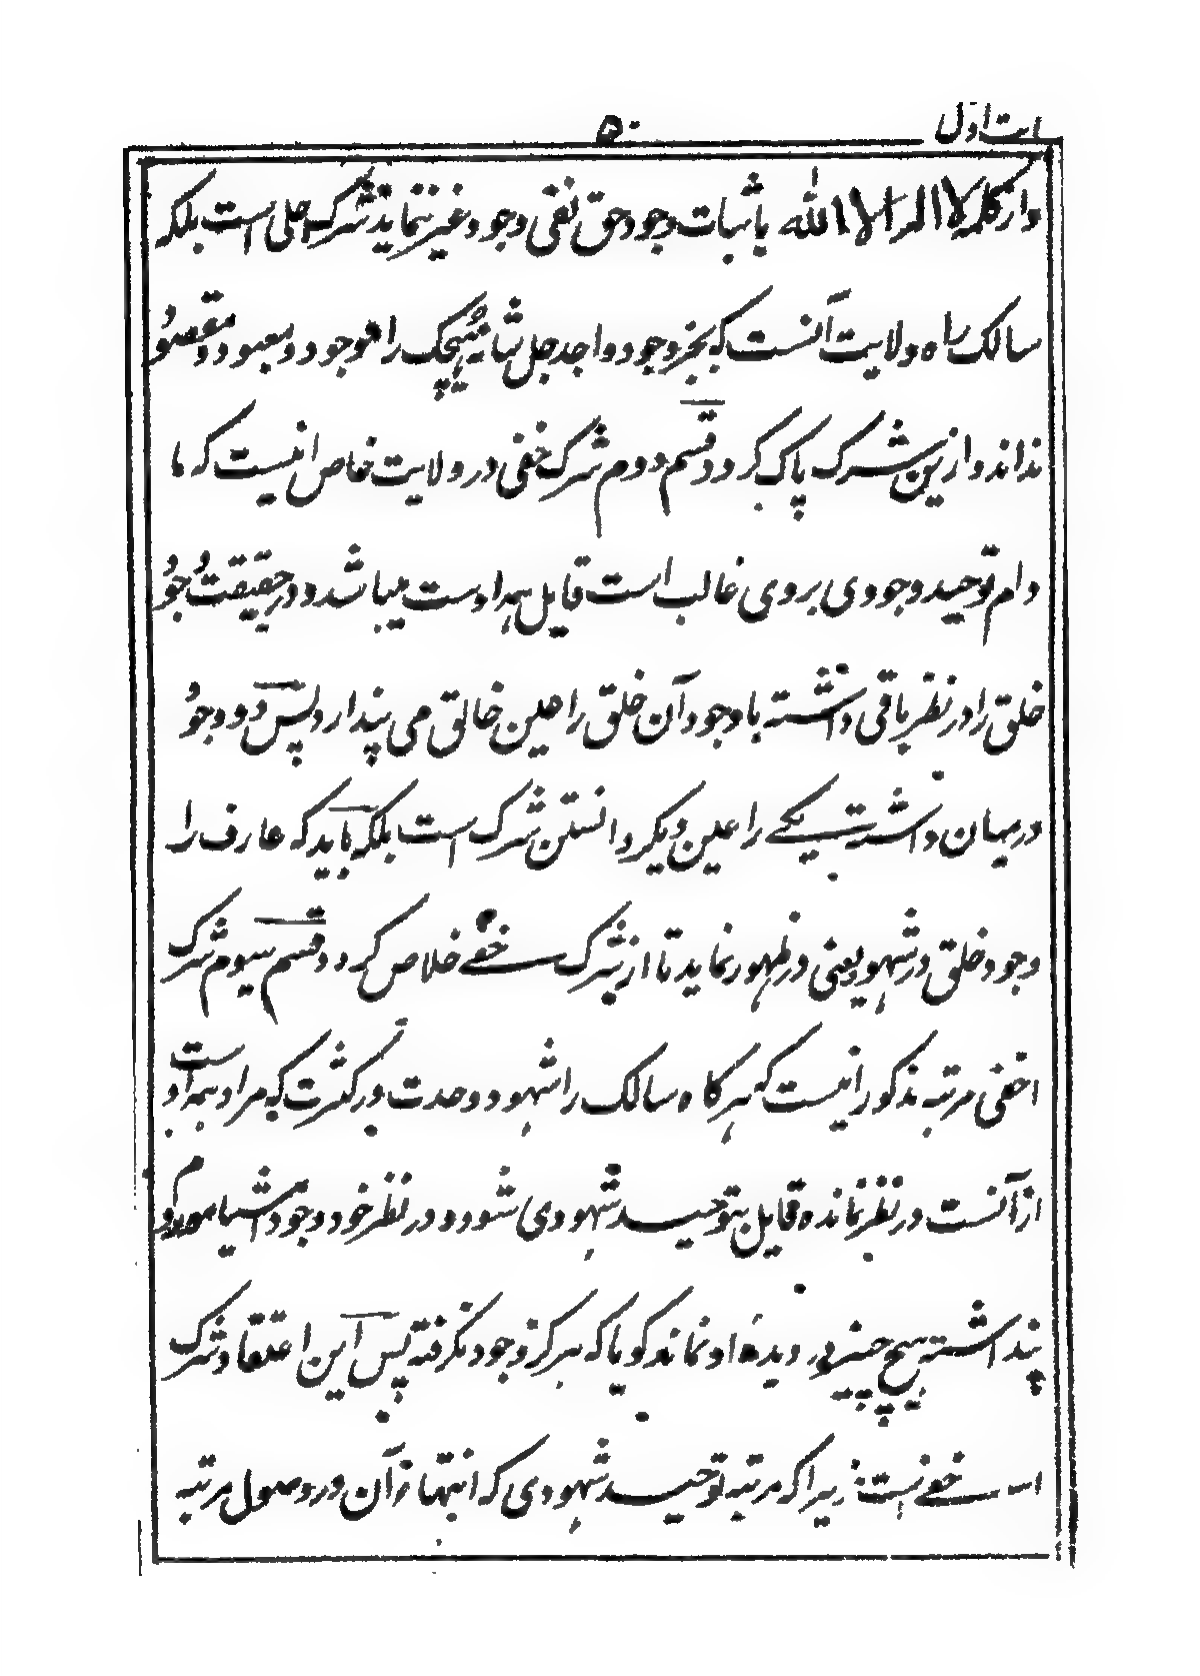 ۵۰
ات اول
واز کلمه لا اله الا الله باثبات وجود حق نفی وجود غیر ننماید شرک جلی است بلکه
سالک راه ولایت آنست که بجز وجود واجد جل شانه هیچیک را موجود و معبود و مقصود
نداند و ازین شرک پاک گردد قسم دوم شرک خفی در ولایت خاص انیست که ما
دام توحید وجودی بروی غالب است قایل همه اوست میباشد و در حقیقت وجود
خلق را در نظر باقی داشته باوجود آن خلق را عین خالق می پندارد پس دو وجود
درمیان داشت یکے را عین دیگر دانستن شرک است بلکه باید که عارف را
وجود خلق در شهود یعنی در ظهور نماید تا از شرک خفے خلاص گردد قسم سیوم شرک
اخفی مرتبه مذکور انیست که هرگاه سالک را شهود وحدت در کثرت که مراد همه اوست
از آنست در نظر نمانده قایل بتوحید شهودی شود و در نظر خود وجود اشیا معدوم
پنداشته هیچ چیز در دیده او نماند گویا که هرگز وجود نگرفته پس این اعتقاد شرک
اخفے است زیرا که مرتبه توحید شهودی که انتهاء آن در وصول مرتبه